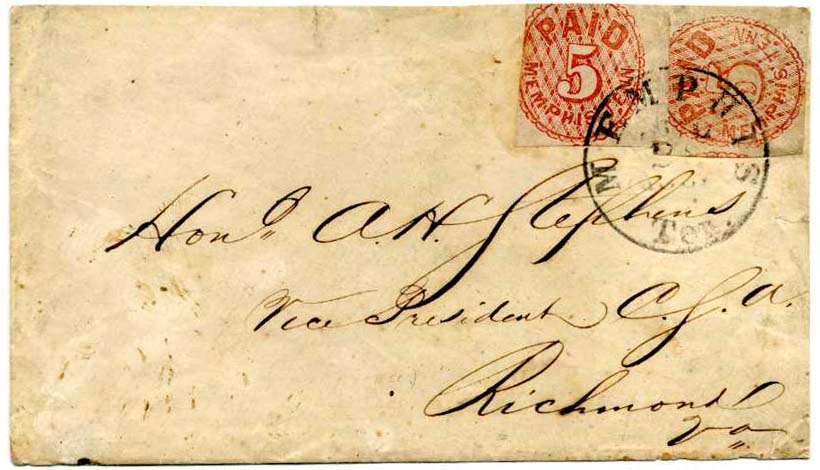 PAID
5
MEMPHIS TENN
PAID
5
MEMPHIS TENN
MEMPHIS
Ten.
Honl. A.H. Stephens
Vice President C.S.A.
Richmond
Va